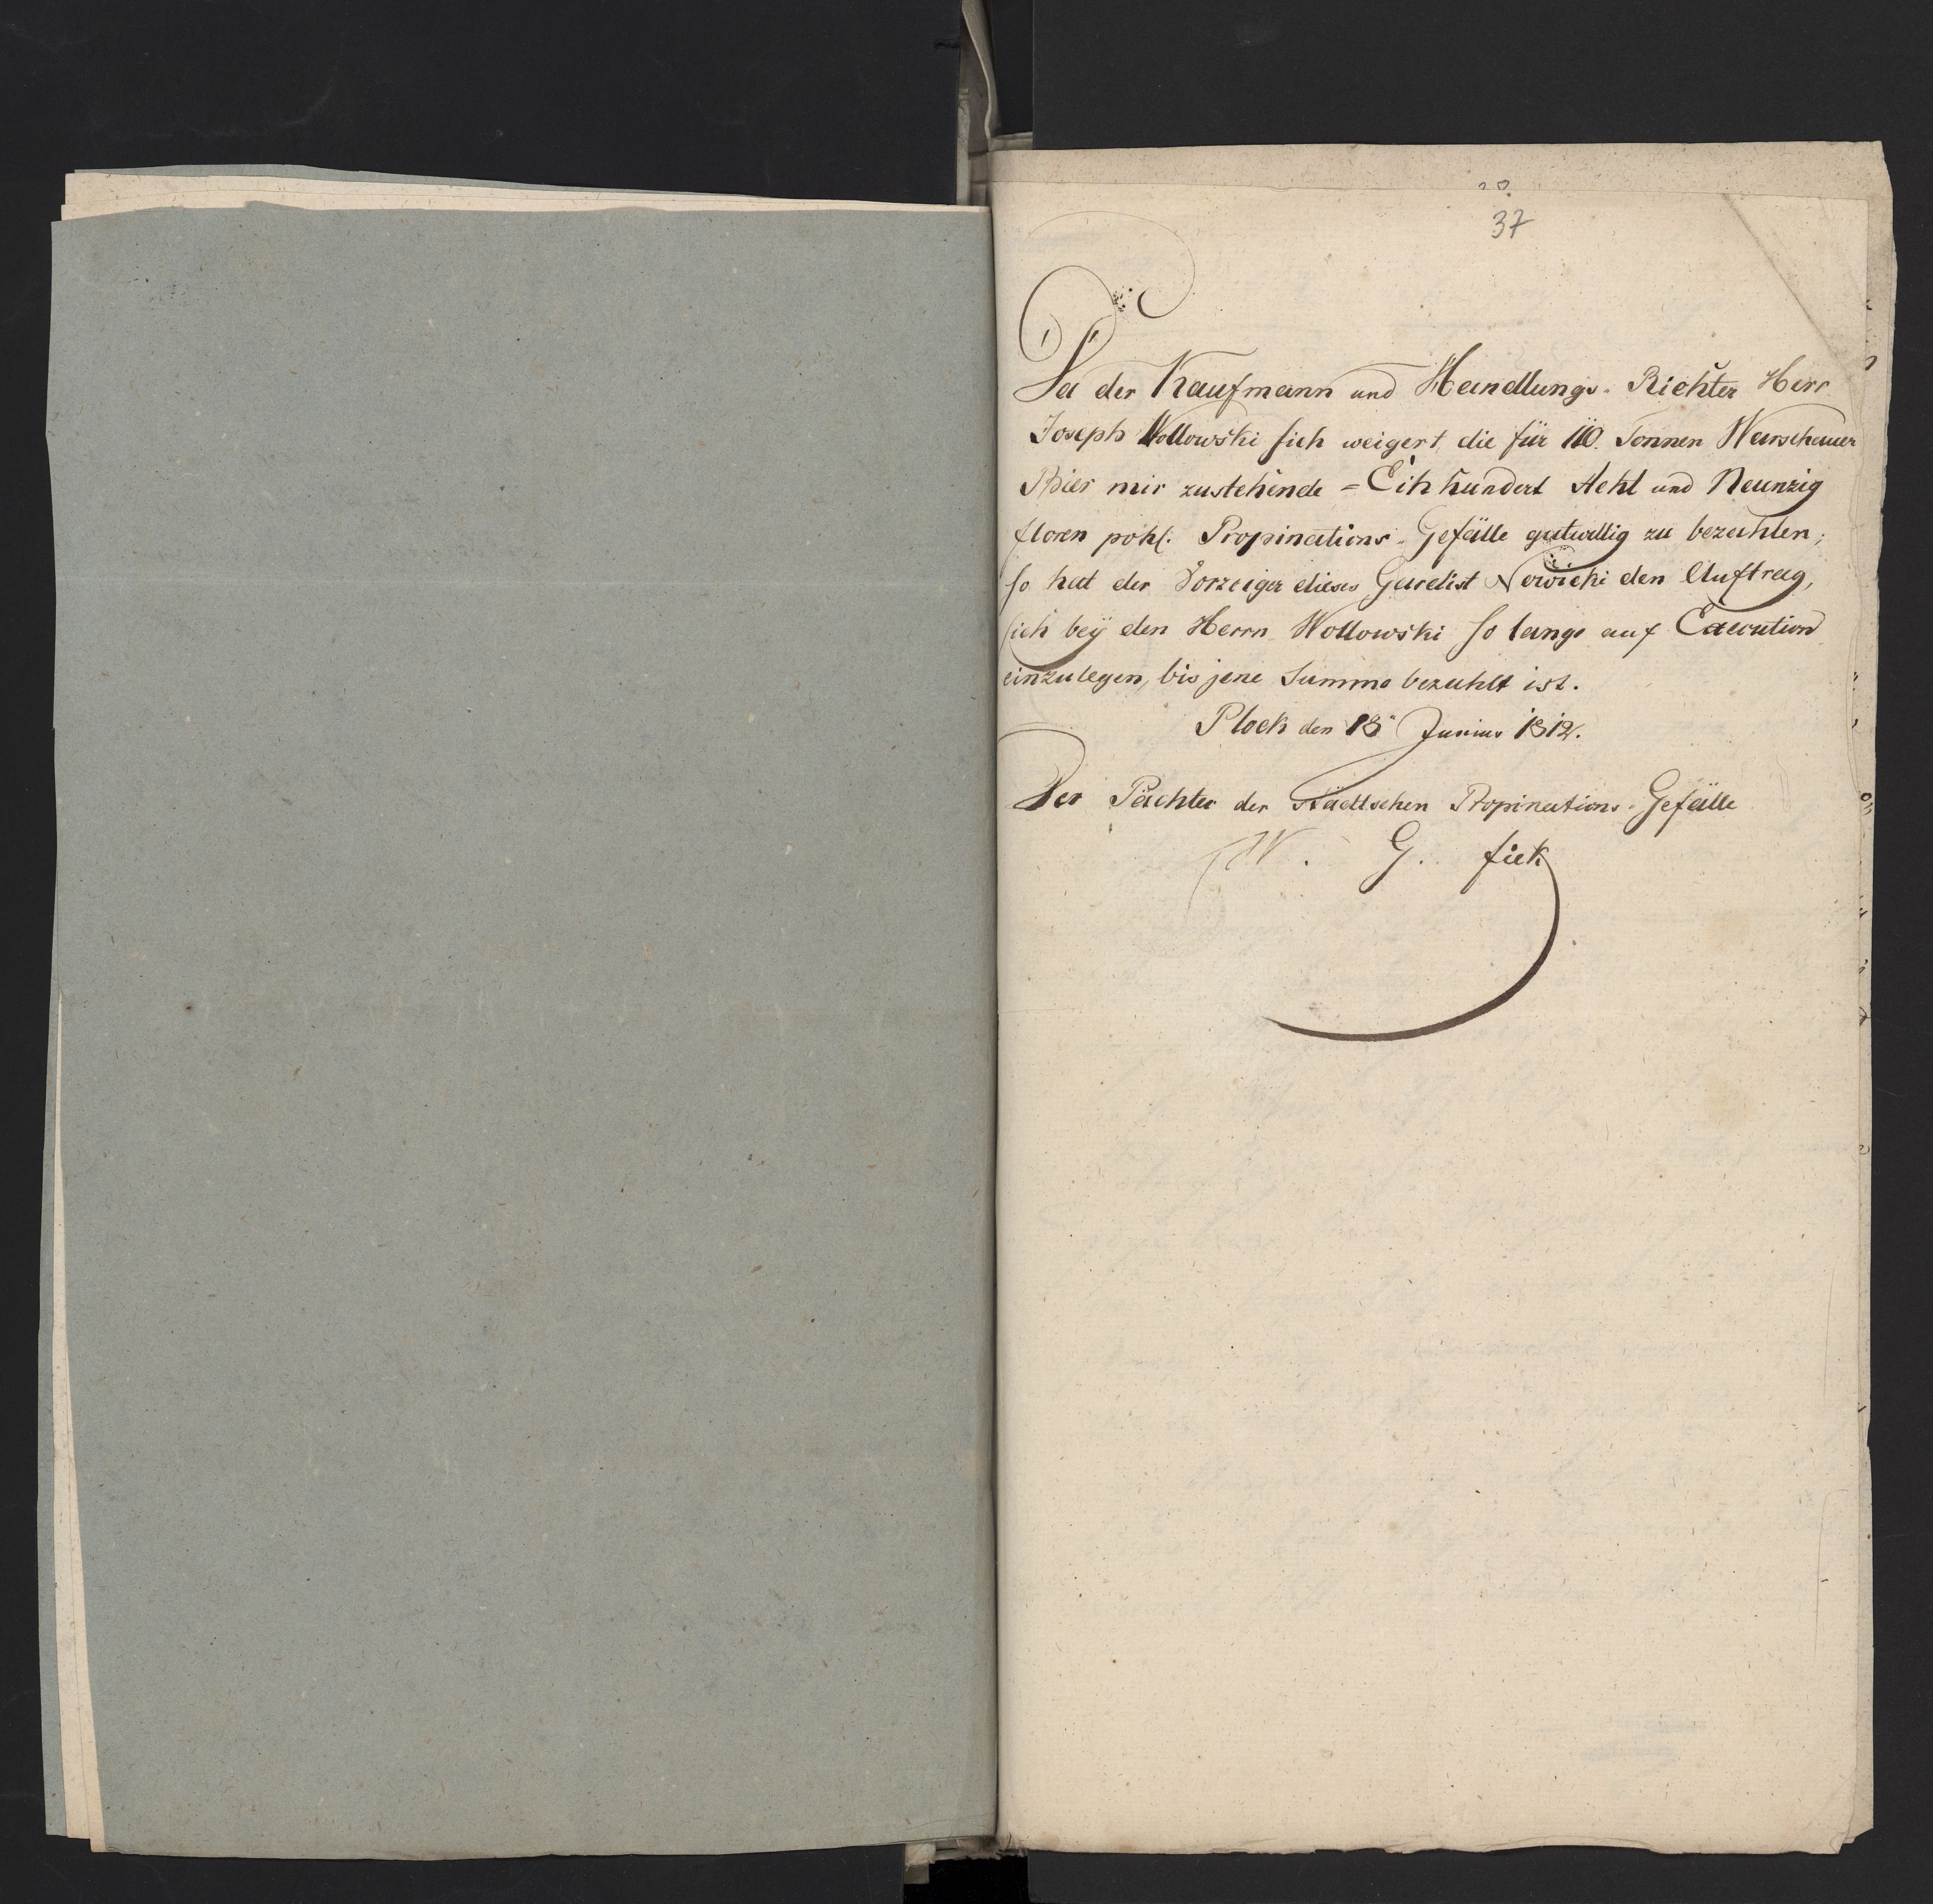 37
Da der Kaufmann und Handlungs-Richter Herr
Joseph Wollowski sich weigert, die für 110. Tonnen Warschauer
Bier mir zustehende = Ein hundert Acht und Neunzig
floren pohl. Propinations-Gefälle gutwillig zu bezahlen;
so hat der Vorzeiger dieses Gardist Nowicki den Auftrag,
sich beÿ den Herrn Wollowski so lange auf Execution
einzulegen, bis jene Summe bezahlt ist.
Plock den 18 Junius 1812.
Der Pächter der Städtschen Propinations-Gefälle
W. G. fick